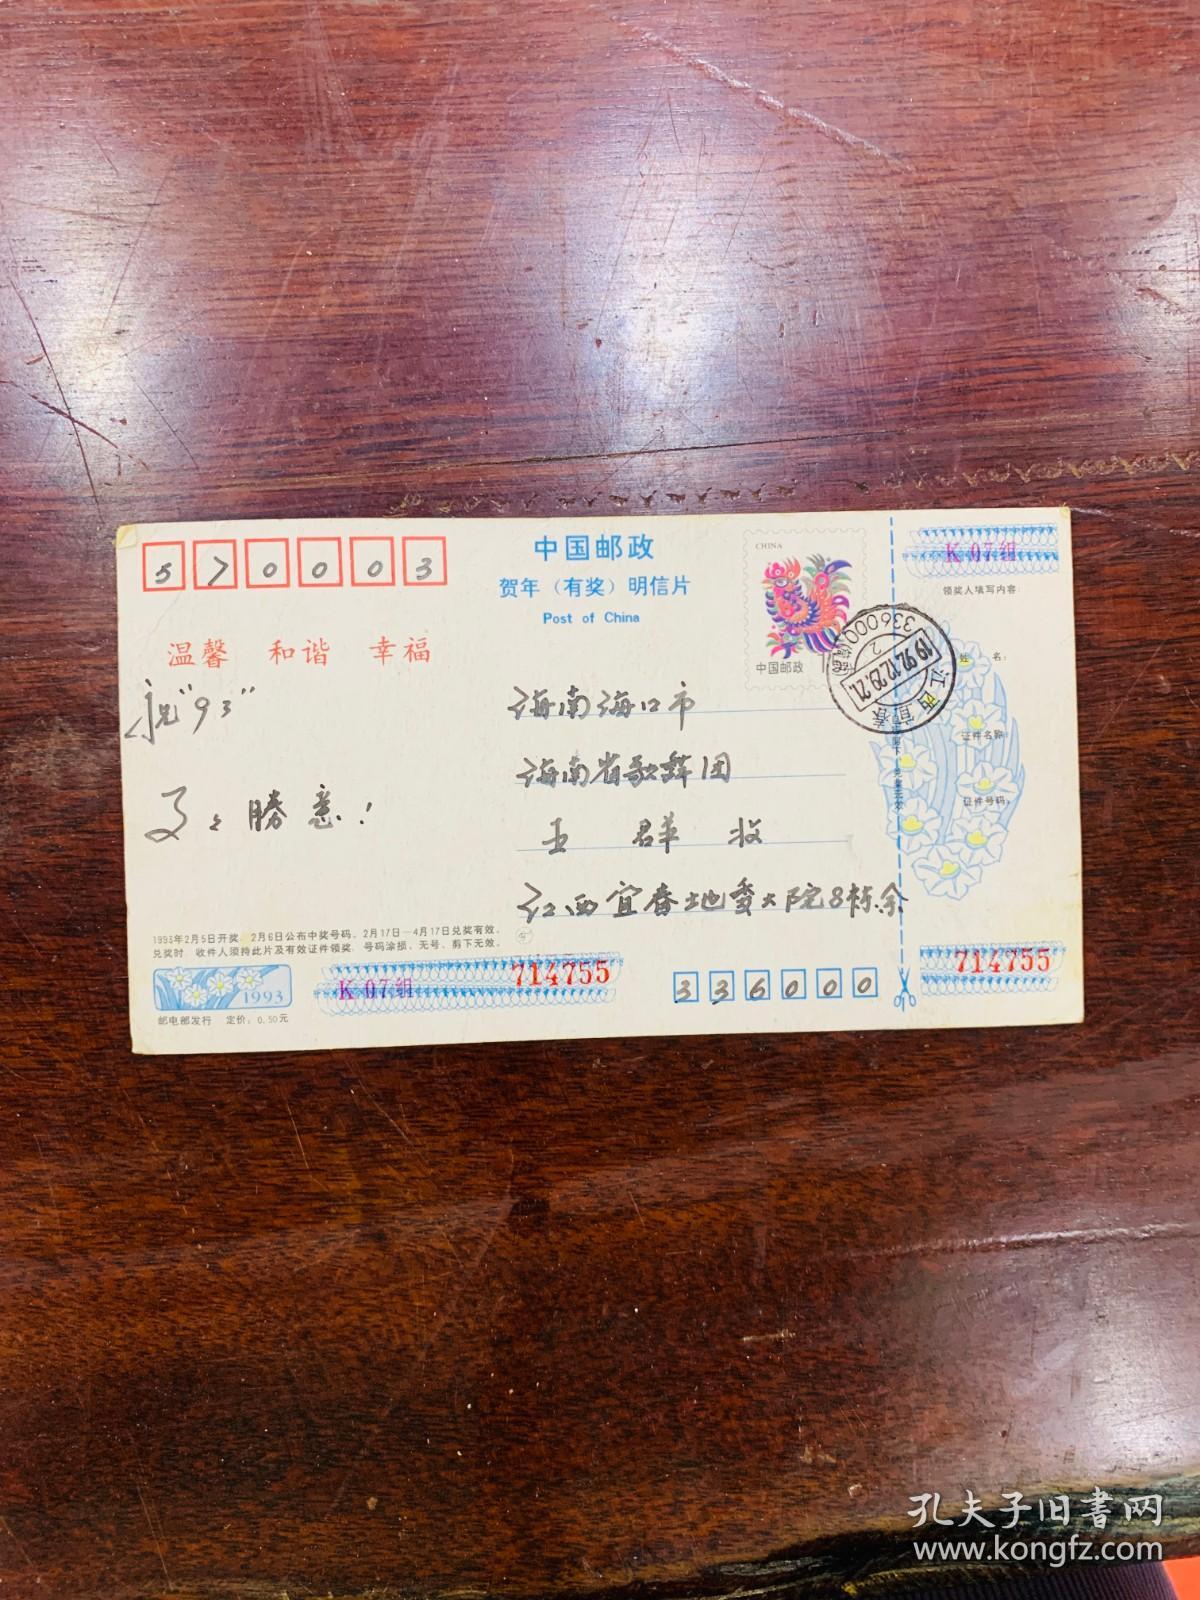 570003
中国邮政
贺年（有奖）明信片
Post of China
CHINA
中国邮政
江西宜春
1992.12.29.21
336000
2
K 07组
领奖人填写内容:
姓 名:
证件名称:
证件号码:
温馨 和谐 幸福
祝"93"
事々勝意!
海南海口市
海南省歌舞团
王 群 收
江西宜春地委大院8栋余
1993年2月5日开奖，2月6日公布中奖号码，2月17日—4月17日兑奖有效。
兑奖时，收件人须持此片及有效证件领奖，号码涂损、无号、剪下无效。
1993
邮电部发行 定价: 0.50元
K 07组
714755
336000
714755
孔夫子旧书网
www.kongfz.com